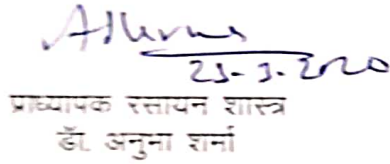 23-3-2020
प्राध्यापक रसायन शास्त्र
डॉ. अनुभा शर्मा